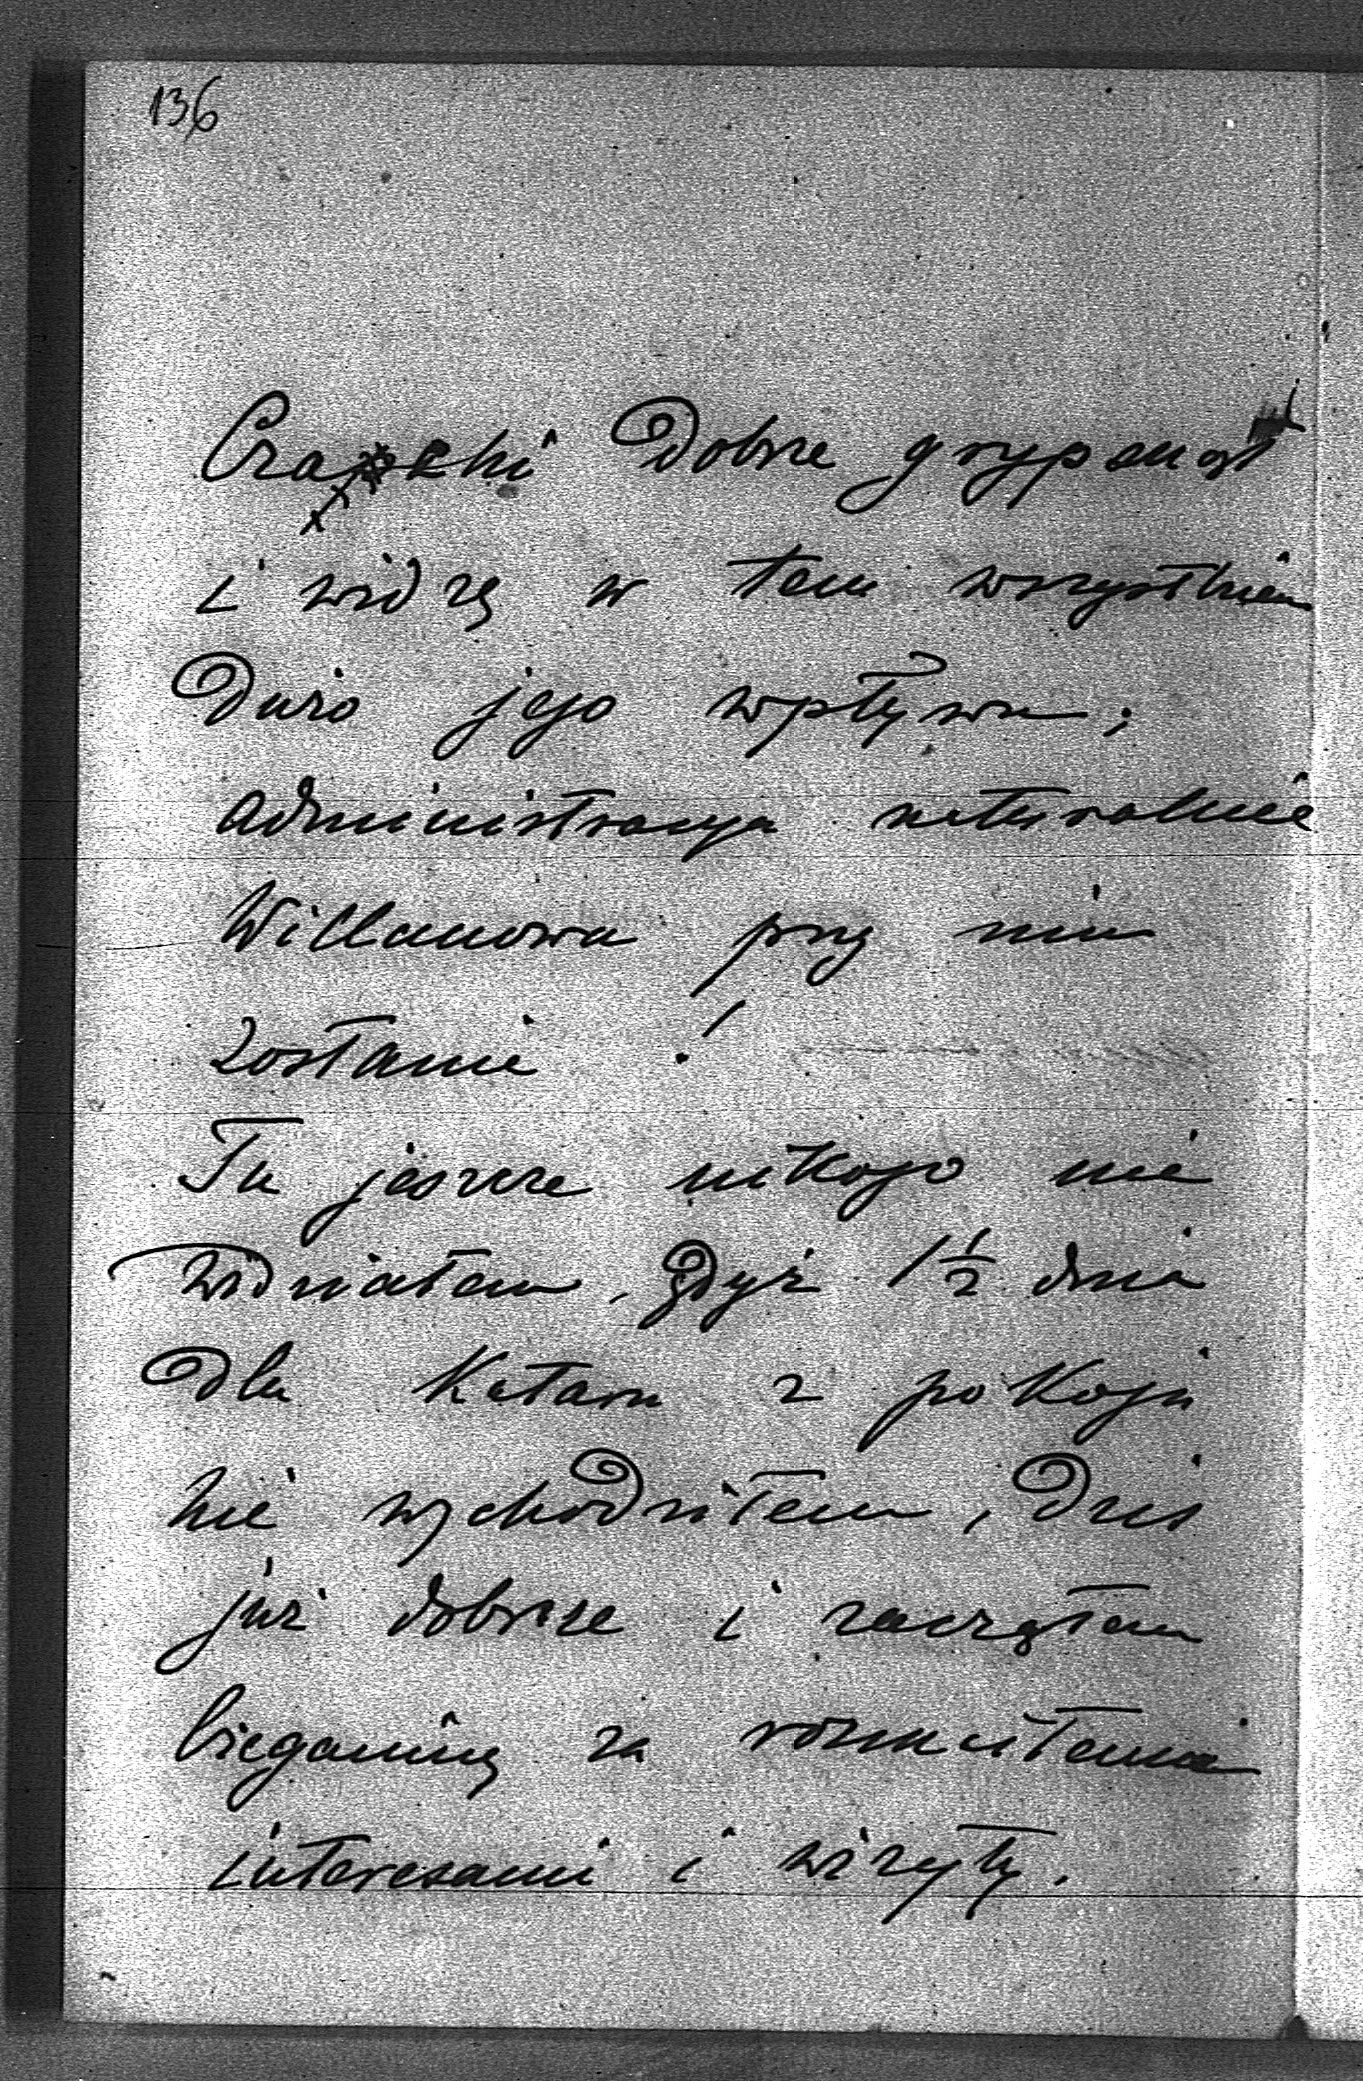 136
Czapski Dobrze
i widzę w tem wszystkiem
Dużo jego wpływu;
administracya naturalnie
Willanowa przy nim
zostanie !
Tu jeszcze nikogo nie
widziałem, gdyż 1 1/2 dnia
Dla Kataru z pokoju
nie wychodziłem, Dziś
już dobrze i zacząłem
bieganinę za rozmaitemi
interesami i wizyty.